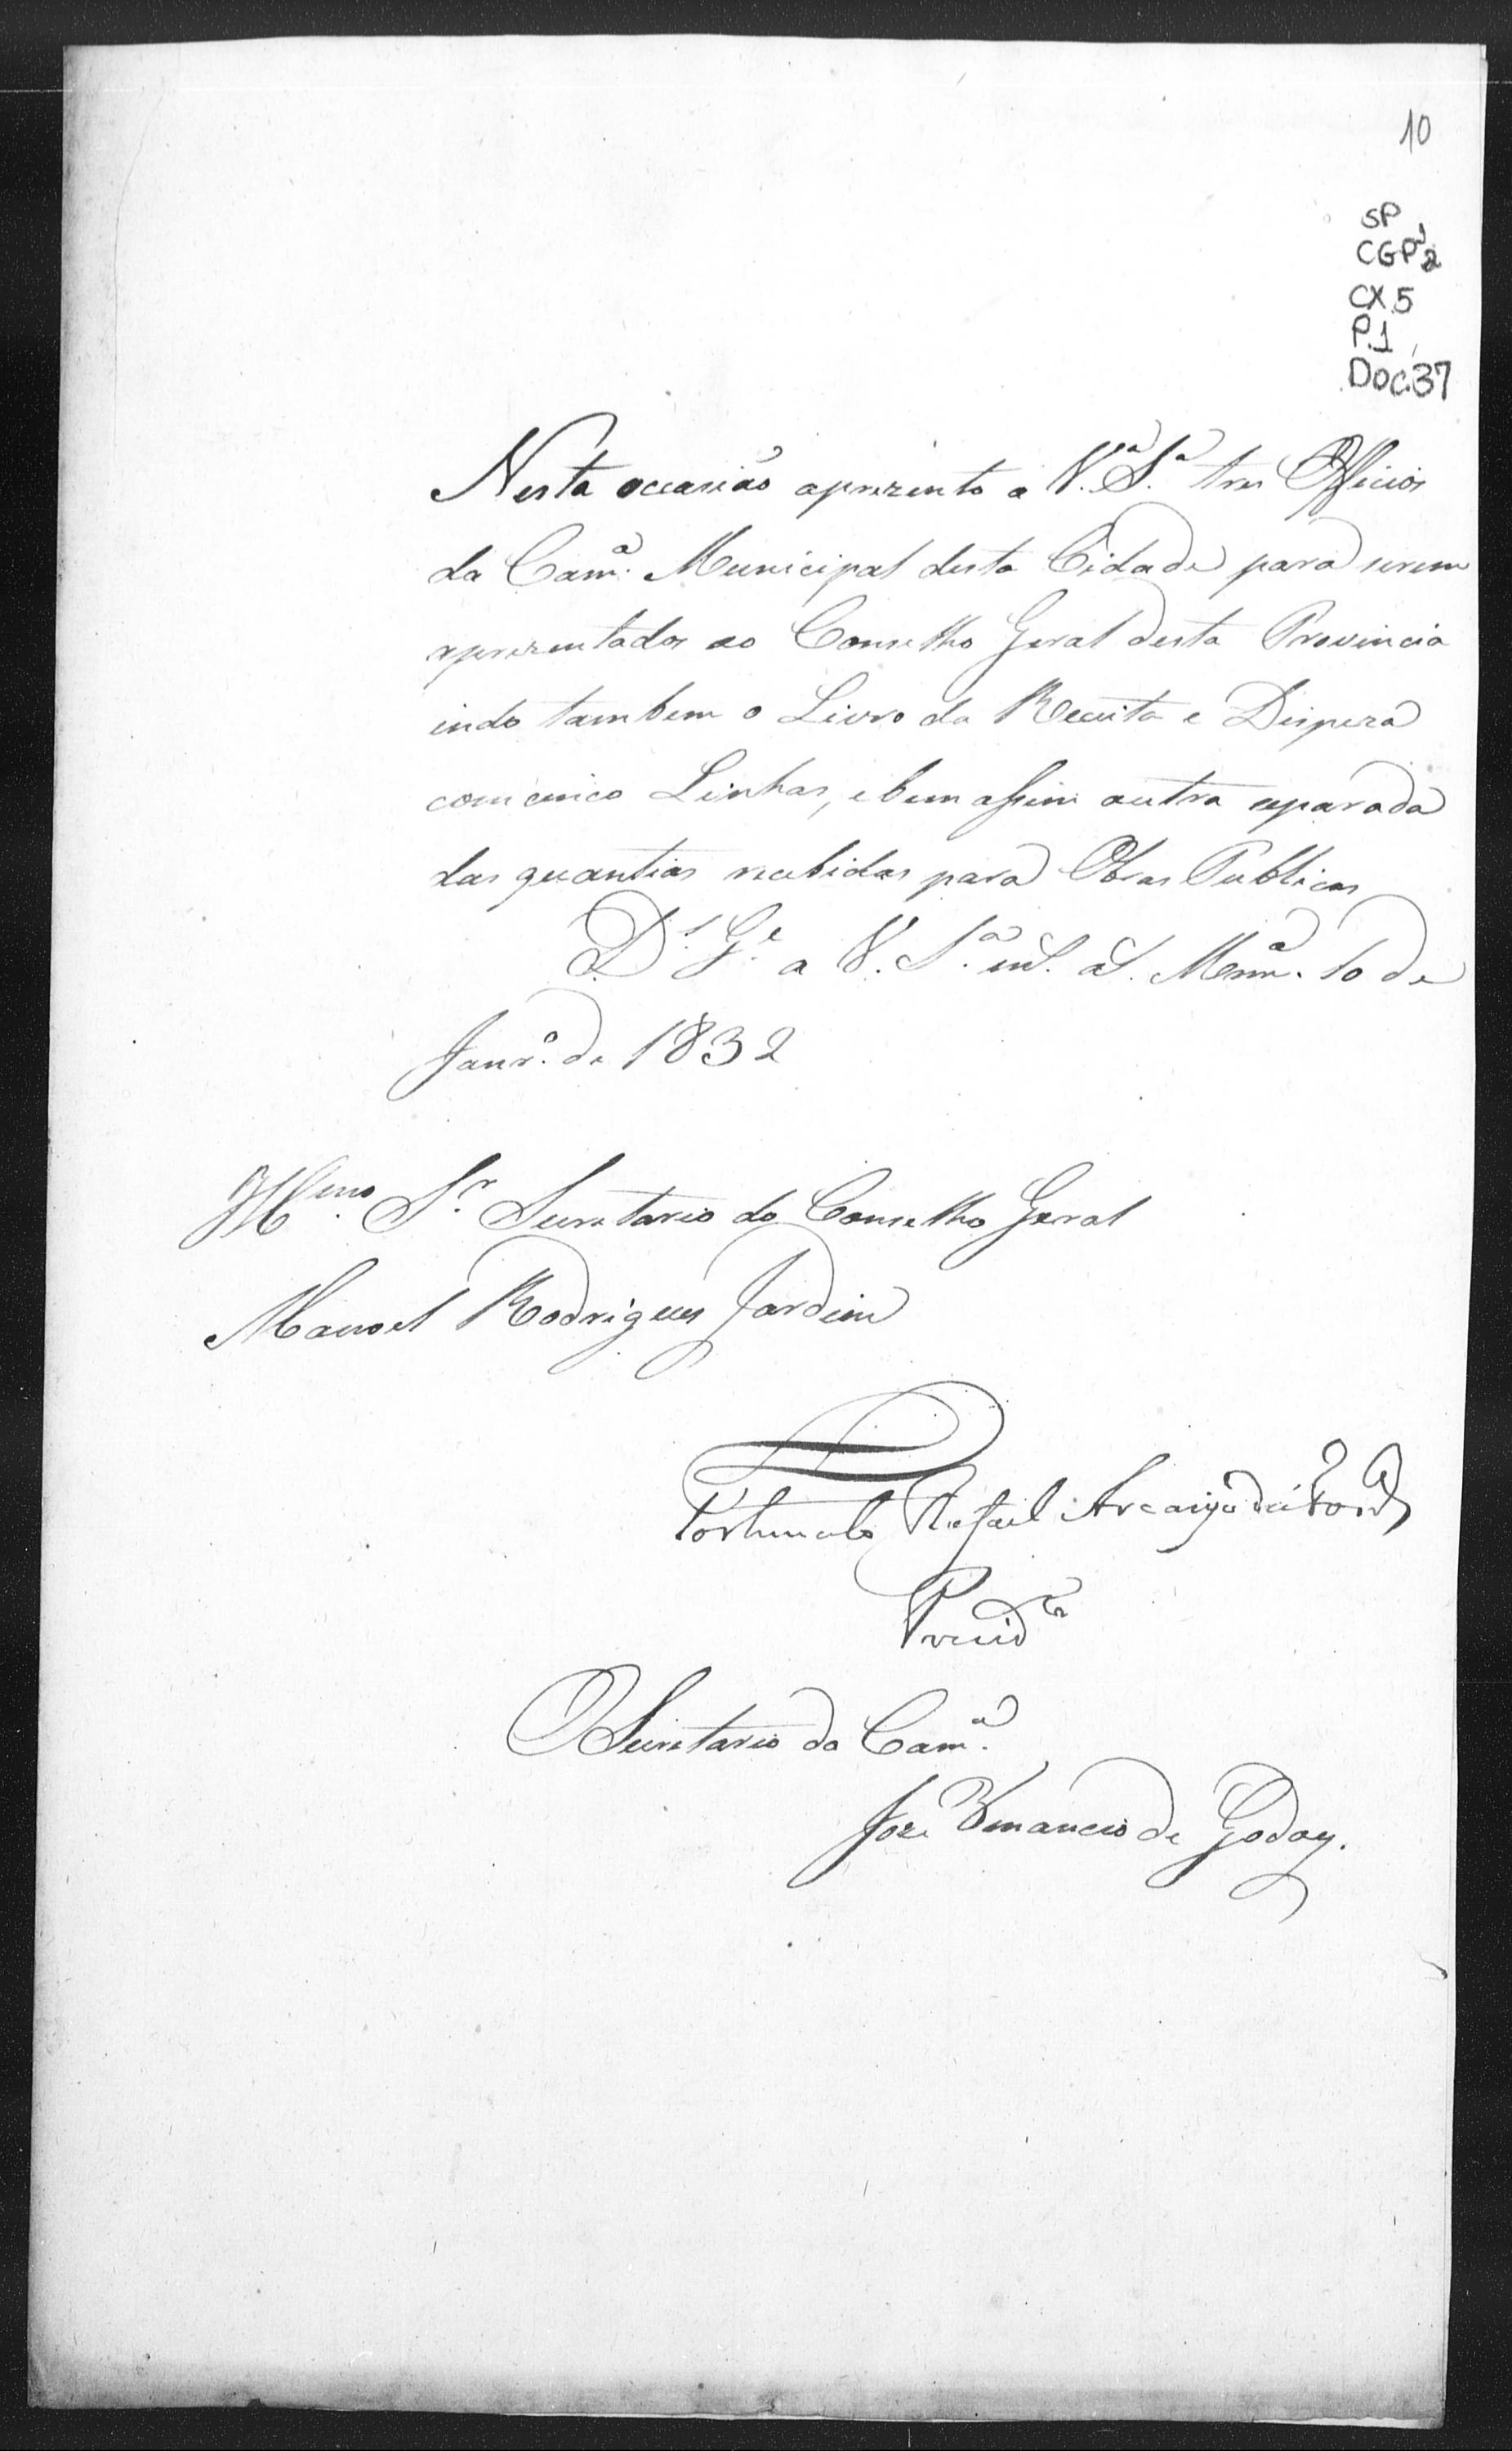 10
SP
CGP1.2
CX.5
P.1
Doc.37
Nesta occasiaõ aprezento a V.ª S.ª tres Officios
da Cam.ª Municipal desta Cidade para serem
aprezentados ao Conselho Geral desta Provincia
indo tambem o Livro da Receita e Dispeza
com cinco Linhas, e bem assim outra separada
das quantias recebidas para Obras Publicas
D.s G.e a V. S.ª m.s a.s 10 de
Janr.º de 1832
Ill.mo S.r Secretario do Conselho Geral
Manoel Rodrigues Jardim
Fortunato Rafael
Presid.te
O Secretario da Cam.ª
Joze Venancio de Godoy.